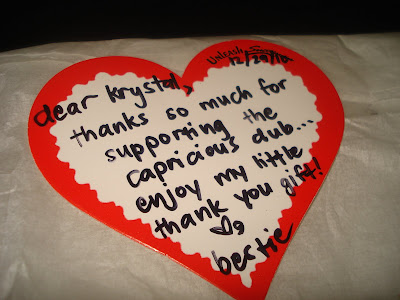 UNLEASH
12/29/10
dear krystal,
thanks so much for
supporting the
capricious dub...
enjoy my little
thank you gift!
bertie